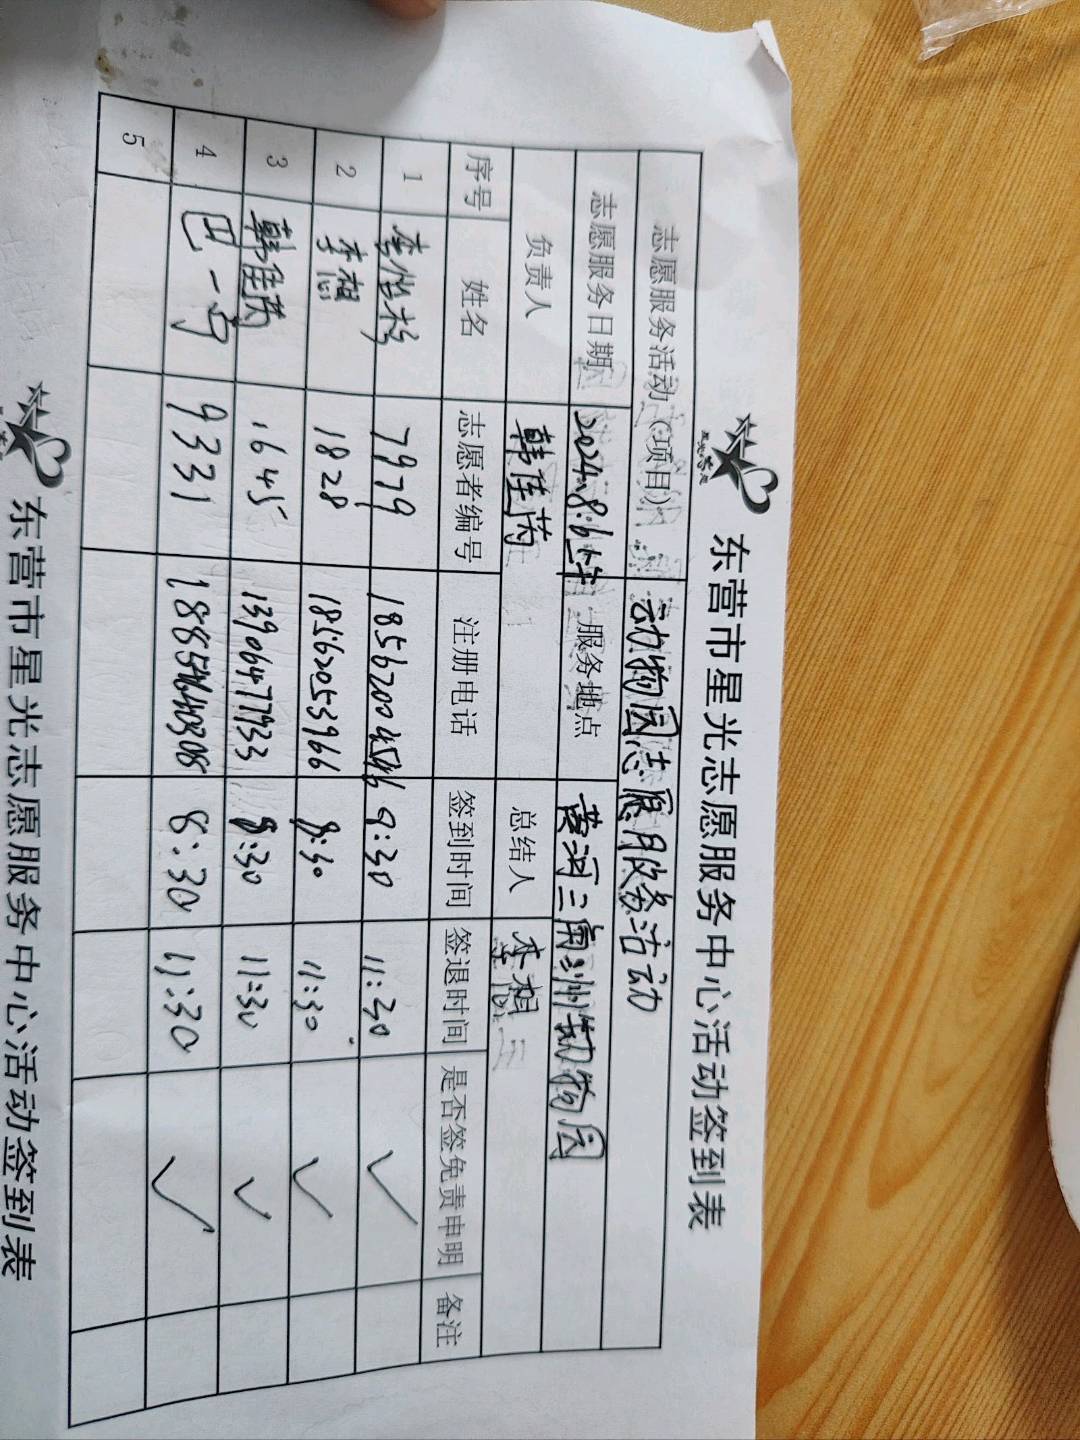 东营市星光志愿服务中心活动签到表
志愿服务活动(项目) 动物园志愿服务活动
志愿服务日期 2024.8.6上午 服务地点 黄河三角洲动物园
负责人 韩佳芮 总结人 李想
序号 姓名 志愿者编号 注册电话 签到时间 签退时间 是否签免责申明 备注
1 7979 9:30 11:30 ✓
2 李想 1828 18562053966 8:30 11:30 ✓
3 韩佳芮 1645 13906477933 8:30 11:30 ✓
4 巴一 9331 18854640308 8:30 11:30 ✓
5
东营市星光志愿服务中心活动签到表